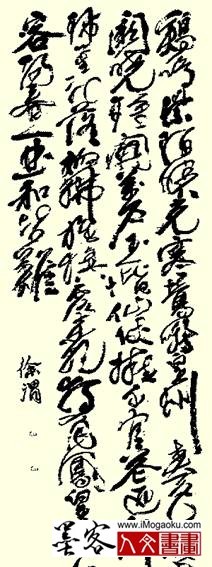 鷄鳴紫陌曙光寒鶯囀皇州春色
闕曉鐘開萬戶玉階仙仗擁千官花迎
珮星初落柳拂旌旗露未乾獨有鳳皇
客陽春一曲和皆難
徐渭
墨客
www.iMogaoku.com
人文書畫